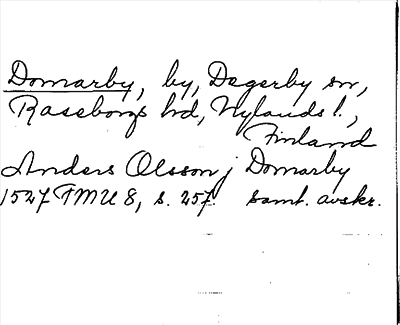 Domarby, by, Degerby sn,
Raseborgs hd, Nylands l.,
Finland
Anders Olsson j Domarby
1527 FMU 8, s. 257. samt. avskr.